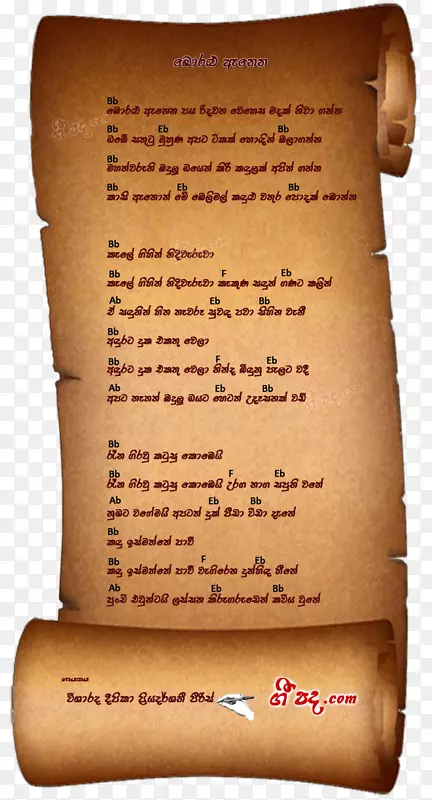 බොරළු ඇනෙන
Bb
බොරළු ඇනෙන පය රිදවන වෙහෙස මදක් නිවා ගන්න
Bb Eb
ඔබේ සතුටු මුහුණ අපට ටිකක් හොඳින් බලාගන්න
Bb
මහත්වරුනි මදුලු ඔයෙන් කිරි කඳුලක් අපින් ගන්න
Bb Eb Bb
කාසි ඇතොත් මේ බෙලිමල් කඳුළු වතුර පොදක් බොන්න
Bb
කැලේ ගිහින් නිදිවැරුවා
Bb F Eb
කැලේ ගිහින් නිදිවැරුවා කැකුණ සඳුන් ගණට කලින්
Ab Eb Bb
ඒ සඳුනින් හිත හැවරූ සුවඳ පවා සිහින වැනී
Bb
අඳුරට දුක එකතු වෙලා
Bb F Eb
අඳුරට දුක එකතු වෙලා නින්ද බිඳුනු පැලට වදී
Ab Eb Bb
අපට නැතත් මදුලු ඔයට හෙටත් උදෑසනක් වඩී
Bb
රෑන ගිරවු කටුසු කොබෙයි
Bb F Eb
රෑන ගිරවු කටුසු කොබෙයි උරග නාග සපුනි වනේ
Ab Eb Bb
නුඹට වගේමයි අපටත් දුක් පීඩා විඩා දැනේ
Bb
කඳු ඉස්මත්තේ පාවී
Bb F Eb
කඳු ඉස්මත්තේ පාවී වැගිරෙන දුන්හිඳ හීනේ
Ab Eb Bb
පුංචි එවුන්ටයි ලස්සන කිරුගරුඬෙන් කවිය වුනේ
ගායනය
විශාරද දීපිකා ප්‍රියදර්ශනී පීරිස්
ගී පද.com